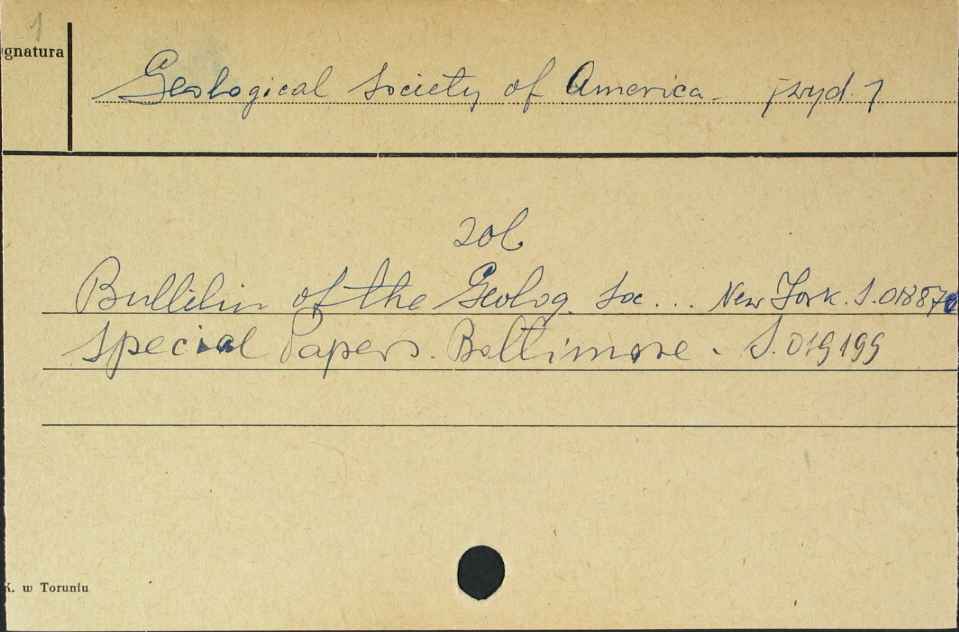 1
gnatura
Geological Society of America. [wyd.]
zob
Bulletin of the Geolog. Soc... New York. S.01887
Special Papers. Baltimore. S.019199
K. w Toruniu